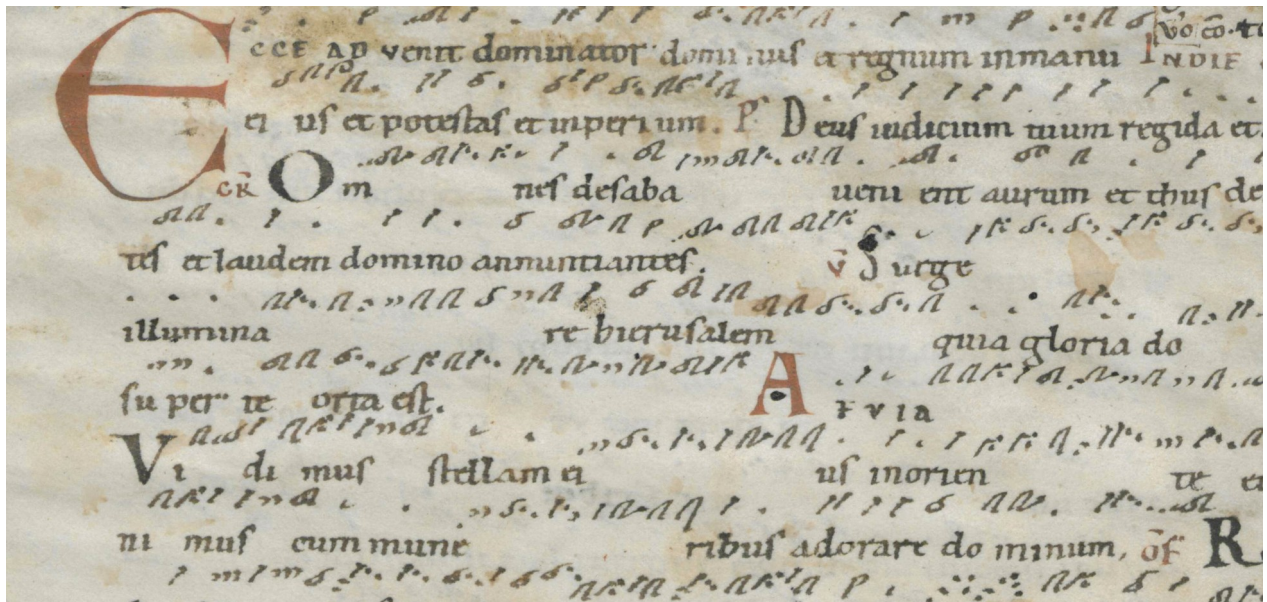 ECCE AD venit dominator dominus et regnum inmanu INDIE
ei us et potestas et inperium. P Deus iudicium tuum regida et
GR Om nes desaba veni ent aurum et thus de
tes et laudem domino annuntiantes. V Surge
illumina re hierusalem quia gloria do
su per te orta est. A EVIA
Vi di mus stellam ei us inorien te et
ni mus cum mune ribus adorare do minum, OF R